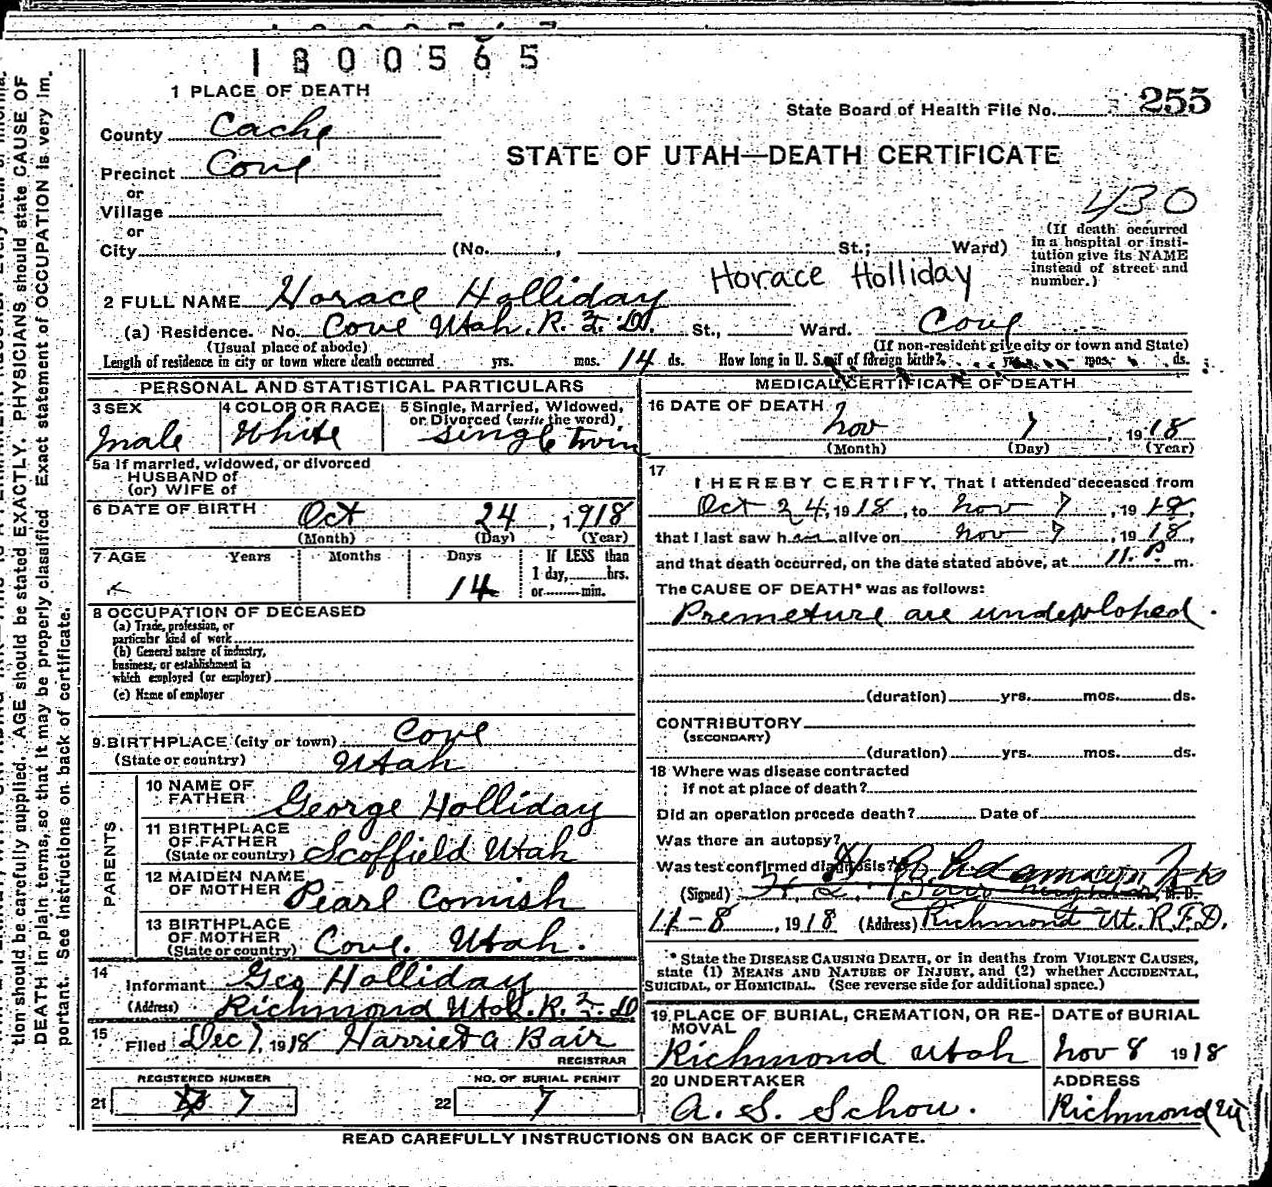 1800565
1 PLACE OF DEATH
State Board of Health File No. 255
County Cache
STATE OF UTAH—DEATH CERTIFICATE
Precinct Cove
or
Village
430
or
City (No. , St.; Ward)
(If death occurred in a hospital or insti-
tution give its NAME
instead of street and
number.)
Horace Holliday
2 FULL NAME Horace Holliday
(a) Residence. No. Cove Utah. R. F. D. St., Ward. Cove
(Usual place of abode) (If non-resident give city or town and State)
Length of residence in city or town where death occurred yrs. mos. 14 ds. How long in U. S. if of foreign birth? yrs. mos. ds.
PERSONAL AND STATISTICAL PARTICULARS
3 SEX
male
4 COLOR OR RACE
White
5 Single, Married, Widowed,
or Divorced (write the word)
single twin
5a If married, widowed, or divorced
HUSBAND of
(or) WIFE of
6 DATE OF BIRTH Oct 24, 1918
(Month) (Day) (Year)
7 AGE Years Months Days If LESS than
1 day, hrs.
14 or min.
8 OCCUPATION OF DECEASED
(a) Trade, profession, or
particular kind of work
(b) General nature of industry,
business, or establishment in
which employed (or employer)
(c) Name of employer
9 BIRTHPLACE (city or town) Cove
(State or country) Utah
PARENTS
10 NAME OF
FATHER George Holliday
11 BIRTHPLACE
OF FATHER
(State or country) Scoffield Utah
12 MAIDEN NAME
OF MOTHER Pearl Cornish
13 BIRTHPLACE
OF MOTHER
(State or country) Cove. Utah.
14
Informant Geo Holliday
(Address) Richmond Utah. R. F. D
15
Filed Dec 7, 1918 Harriet A Bair
REGISTRAR
REGISTERED NUMBER
21 7
NO. OF BURIAL PERMIT
22 7
MEDICAL CERTIFICATE OF DEATH
16 DATE OF DEATH
Nov 7, 1918
(Month) (Day) (Year)
17
I HEREBY CERTIFY, That I attended deceased from
Oct 24, 1918, to Nov 7, 1918,
that I last saw him alive on Nov 7, 1918,
and that death occurred, on the date stated above, at 11. P. m.
The CAUSE OF DEATH* was as follows:
Premeture are undeplohed.
(duration) yrs. mos. ds.
CONTRIBUTORY
(SECONDARY)
(duration) yrs. mos. ds.
18 Where was disease contracted
If not at place of death?
Did an operation procede death? Date of
Was there an autopsy?
Was test confirmed diagnosis?
(Signed) Adamson M.D.
11-8, 1918 (Address) Richmond Ut. R.F.D.
* State the DISEASE CAUSING DEATH, or in deaths from VIOLENT CAUSES,
state (1) MEANS AND NATURE OF INJURY, and (2) whether ACCIDENTAL,
SUICIDAL, or HOMICIDAL. (See reverse side for additional space.)
19 PLACE OF BURIAL, CREMATION, OR RE-
MOVAL
Richmond Utah
DATE of BURIAL
Nov 8 1918
20 UNDERTAKER
A. S. Schow.
ADDRESS
Richmond Ut
READ CAREFULLY INSTRUCTIONS ON BACK OF CERTIFICATE.
tion should be carefully supplied. AGE should be stated EXACTLY. PHYSICIANS should state CAUSE OF
DEATH in plain terms, so that it may be properly classified. Exact statement of OCCUPATION is very im-
portant. See instructions on back of certificate.